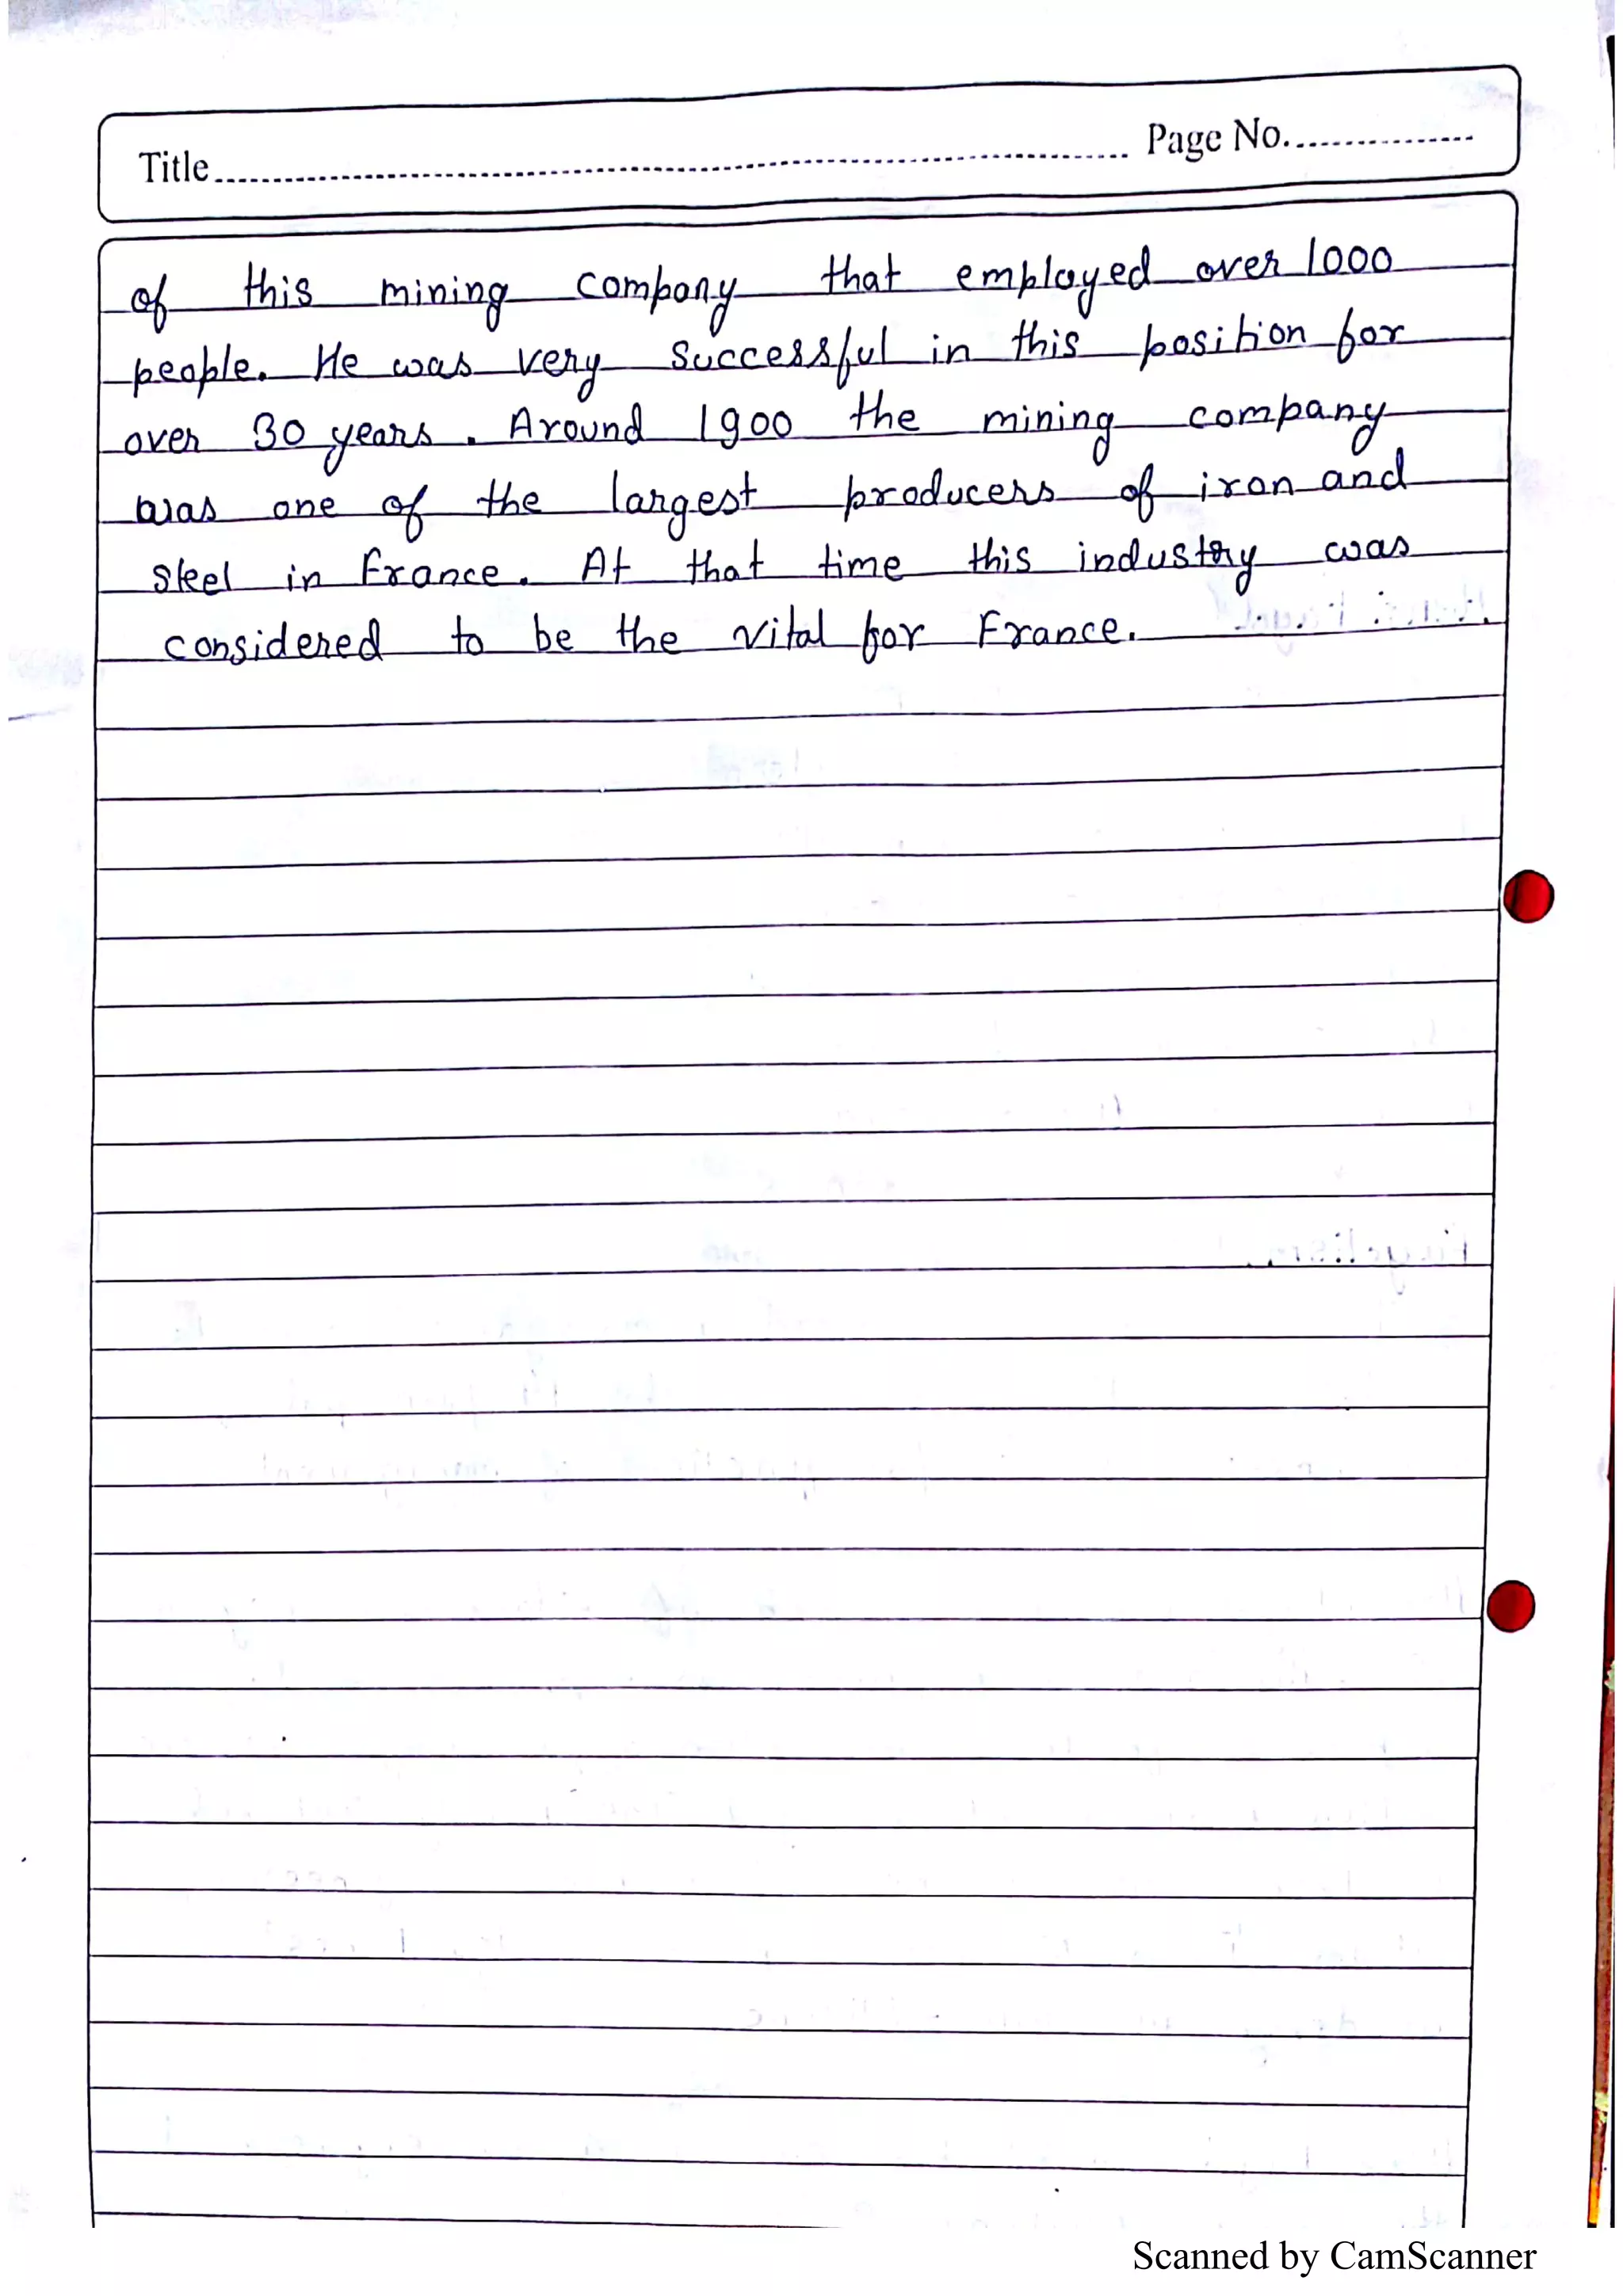 Title
Page No.
of this mining company that employed over 1000
people. He was very successful in this position for
over 30 years. Around 1900 the mining company
was one of the largest producers of iron and
steel in France. At that time this industry was
considered to be the vital for France.
Scanned by CamScanner